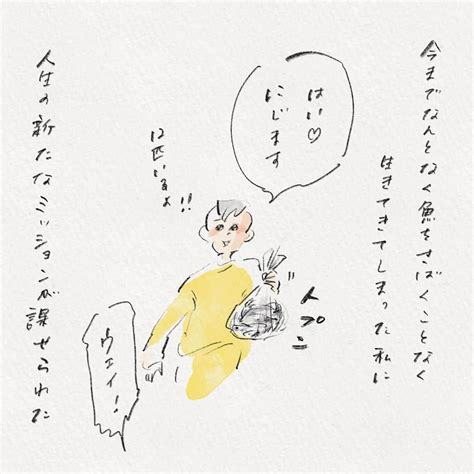 今までなんとなく魚をさばくことなく
生きてきてしまった私に
はい♡
にじます
12匹いるよ!!
プン
ウェイ!
人生の新たなミッションが課せられた